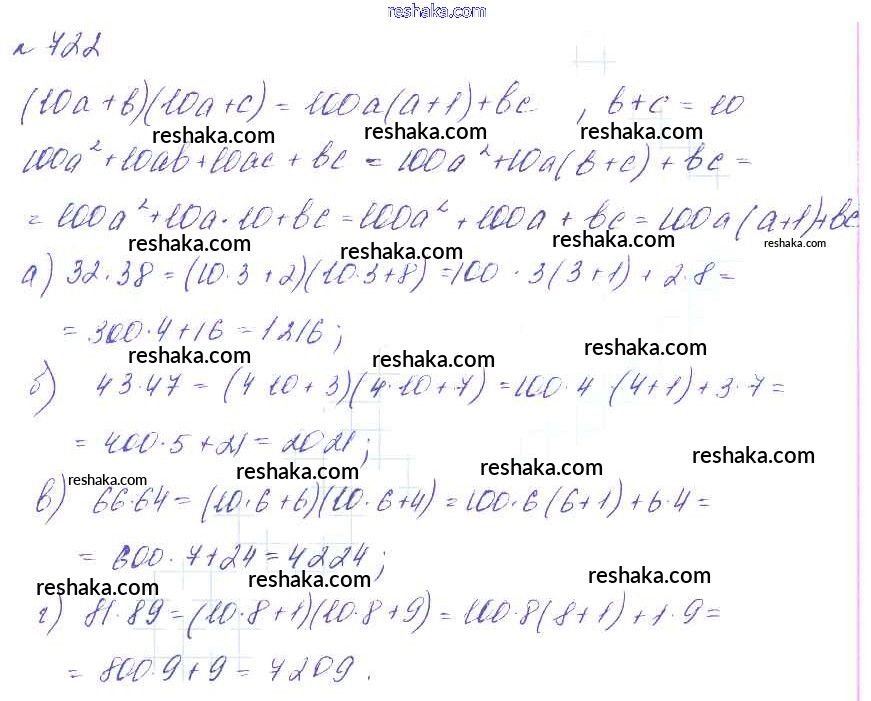 reshaka.com
№ 722
(10a+b)(10a+c) = 100a(a+1)+bc , b+c = 10
reshaka.com reshaka.com reshaka.com
100a²+10ab+10ac + bc = 100a²+10a(b+c) + bc =
= 100a²+10a·10+bc = 100a² + 100a + bc = 100a(a+1)+bc
reshaka.com reshaka.com reshaka.com reshaka.com
а) 32·38 = (10·3+2)(10·3+8) = 100·3(3+1) + 2·8 =
= 300·4+16 = 1216;
reshaka.com reshaka.com reshaka.com
б) 43·47 = (4 10+3)(4·10+7) = 100·4 (4+1)+3·7 =
= 400·5+21 = 2021;
reshaka.com reshaka.com reshaka.com reshaka.com
в) 66·64 = (10·6+6)(10·6+4) = 100·6(6+1)+6·4 =
= 600·7+24 = 4224;
reshaka.com reshaka.com reshaka.com
г) 81·89 = (10·8+1)(10·8+9) = 100·8(8+1)+1·9 =
= 800·9+9 = 7209.